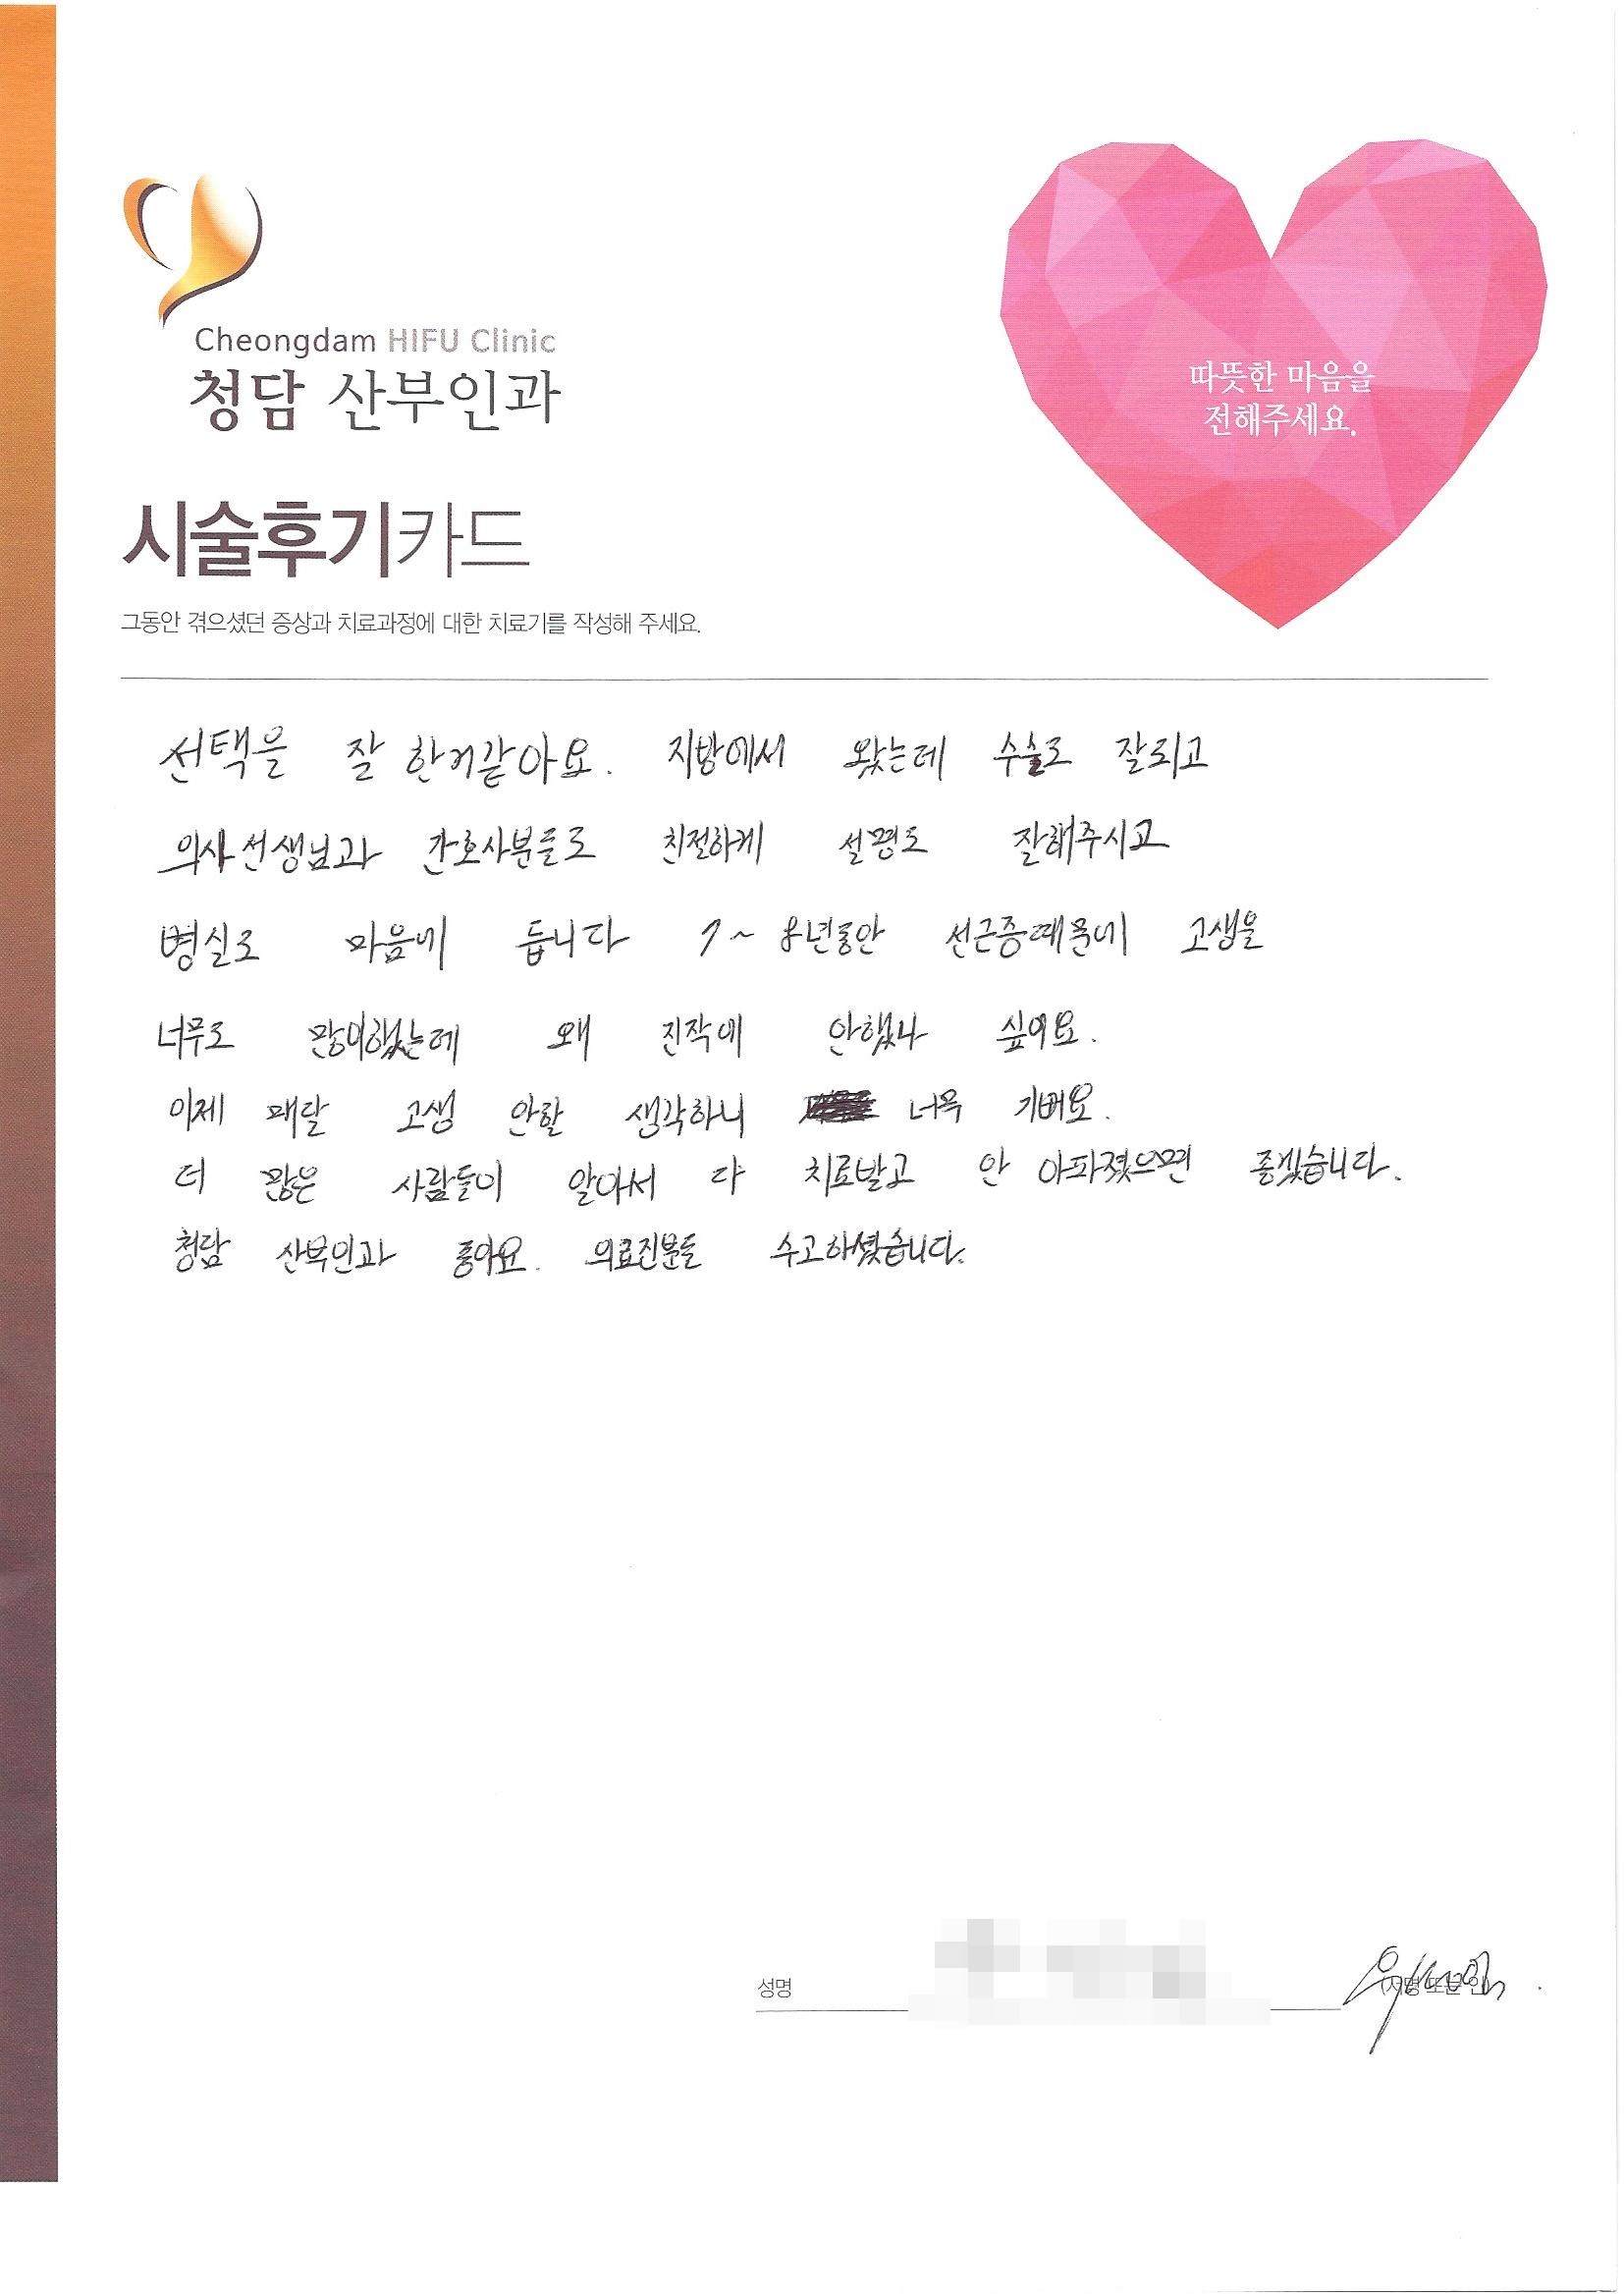 Cheongdam HIFU Clinic
청담 산부인과
따뜻한 마음을
전해주세요.
시술후기카드
그동안 겪으셨던 증상과 치료과정에 대한 치료기를 작성해 주세요.
선택을 잘 한거같아요. 지방에서 왔는데 수술도 잘되고
의사선생님과 간호사분들도 친절하게 설명도 잘해주시고
병실도 마음에 듭니다 7~8년동안 선근증때문에 고생을
너무도 많이했는데 왜 진작에 안했나 싶어요.
이제 매달 고생 안할 생각하니 너무 기뻐요.
더 많은 사람들이 알아서 다 치료받고 안 아파졌으면 좋겠습니다.
청담 산부인과 좋아요. 의료진분들 수고하셨습니다.
성명 (서명 또는 인)